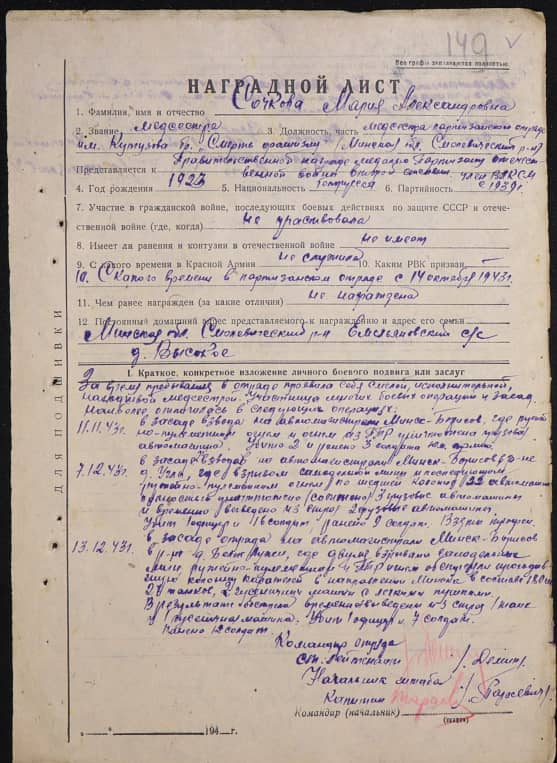 149
Все графы заполняются полностью
НАГРАДНОЙ ЛИСТ
1. Фамилия, имя и отчество Сочкова Мария Александровна
2. Звание медсестра 3. Должность, часть медсестра партизанского отряда
им. Кутузова бр. Смерть фашизму (Минская обл. Смолевичский р-н)
Правительственной награде медалью Партизану отечест
Представляется к венной войны второй степени. член ВЛКСМ
4. Год рождения 1923 5. Национальность белоруска 6. Партийность с 1939г.
7. Участие в гражданской войне, последующих боевых действиях по защите СССР и отече-
ственной войне (где, когда) не участвовала
8. Имеет ли ранения и контузии в отечественной войне не имеет
9. С какого времени в Красной Армии не служила 10. Каким РВК призван
10. С какого времени в партизанском отряде с 14 октября 1943г.
11. Чем ранее награжден (за какие отличия) не награждена
12. Постоянный домашний адрес представляемого к награждению и адрес его семьи
Минская обл. Смолевичский р-н Емельяновский с/с
д. Высокое
ДЛЯ ПОДШИВКИ
I. Краткое, конкретное изложение личного боевого подвига или заслуг
За время пребывания в отряде проявила себя смелой, исполнительной,
медсестрой. Участница многих боевых операций и засад.
Наиболее отличилась в следующих операциях:
11.11.43г. в засаде взвода на автомагистрали Минск-Борисов, где ружей
но-пулеметным огнем и огнем из ПТР уничтожена грузовая
автомашина. Убито 2 и ранено 3 солдата
7.12.43г. в засаде взводов на автомагистрали Минск-Борисов в р-не
д. где взрывом самодельной мины и последующим
ружейно-пулеметным огнем по шедшей колонне 22 автомашин
уничтожено (сожжено) 3 грузовые автомашины
и временно выведено из строя 2 грузовые автомашины.
Убит 1 офицер и 11 солдат, ранено 9 солдат. Взяты трофеи.
13.12.43г. в засаде отряда на автомагистрали Минск-Борисов
в р-не д. где двумя взрывами
мин ружейно-пулеметным и ПТР огнем обстреляли
колонну карателей в направлении Минска в составе
2 танков, 2 гусеничных машин с легкими пушками.
В результате обстрела временно выведены из строя 1 танк
и 1 гусеничная машина. Убит 1 офицер и 7 солдат.
Ранено 12 солдат
Командир отряда
ст. лейтенант
Начальник штаба
Капитан
Командир (начальник)
(подпись)
„ “ 194 г.